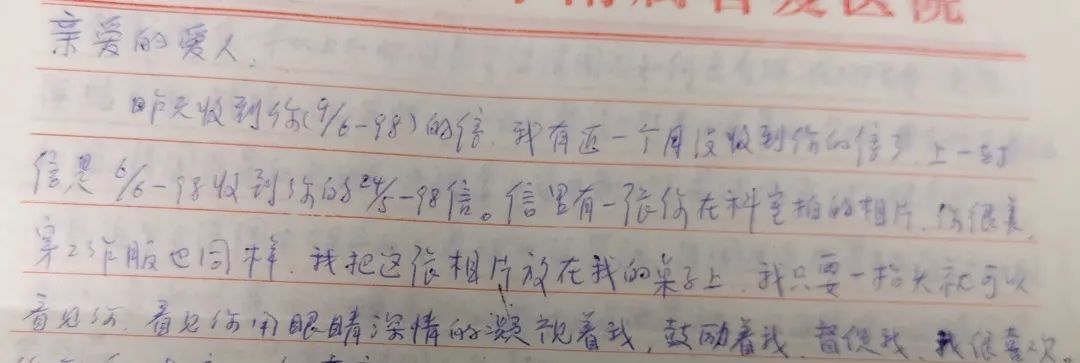 属首发医院
亲爱的爱人.
昨天收到你(9/6-98)的信.我有近一个月没收到你的信了.上一封
信是6/6-98收到你的24/5-98信。信里有一张你在科室拍的相片.你很美,
穿工作服也同样.我把这张相片放在我的桌子上.我只要一抬头就可以
看见你.看见你用眼睛深情的凝视着我,鼓励着我.督促我.我很喜欢.